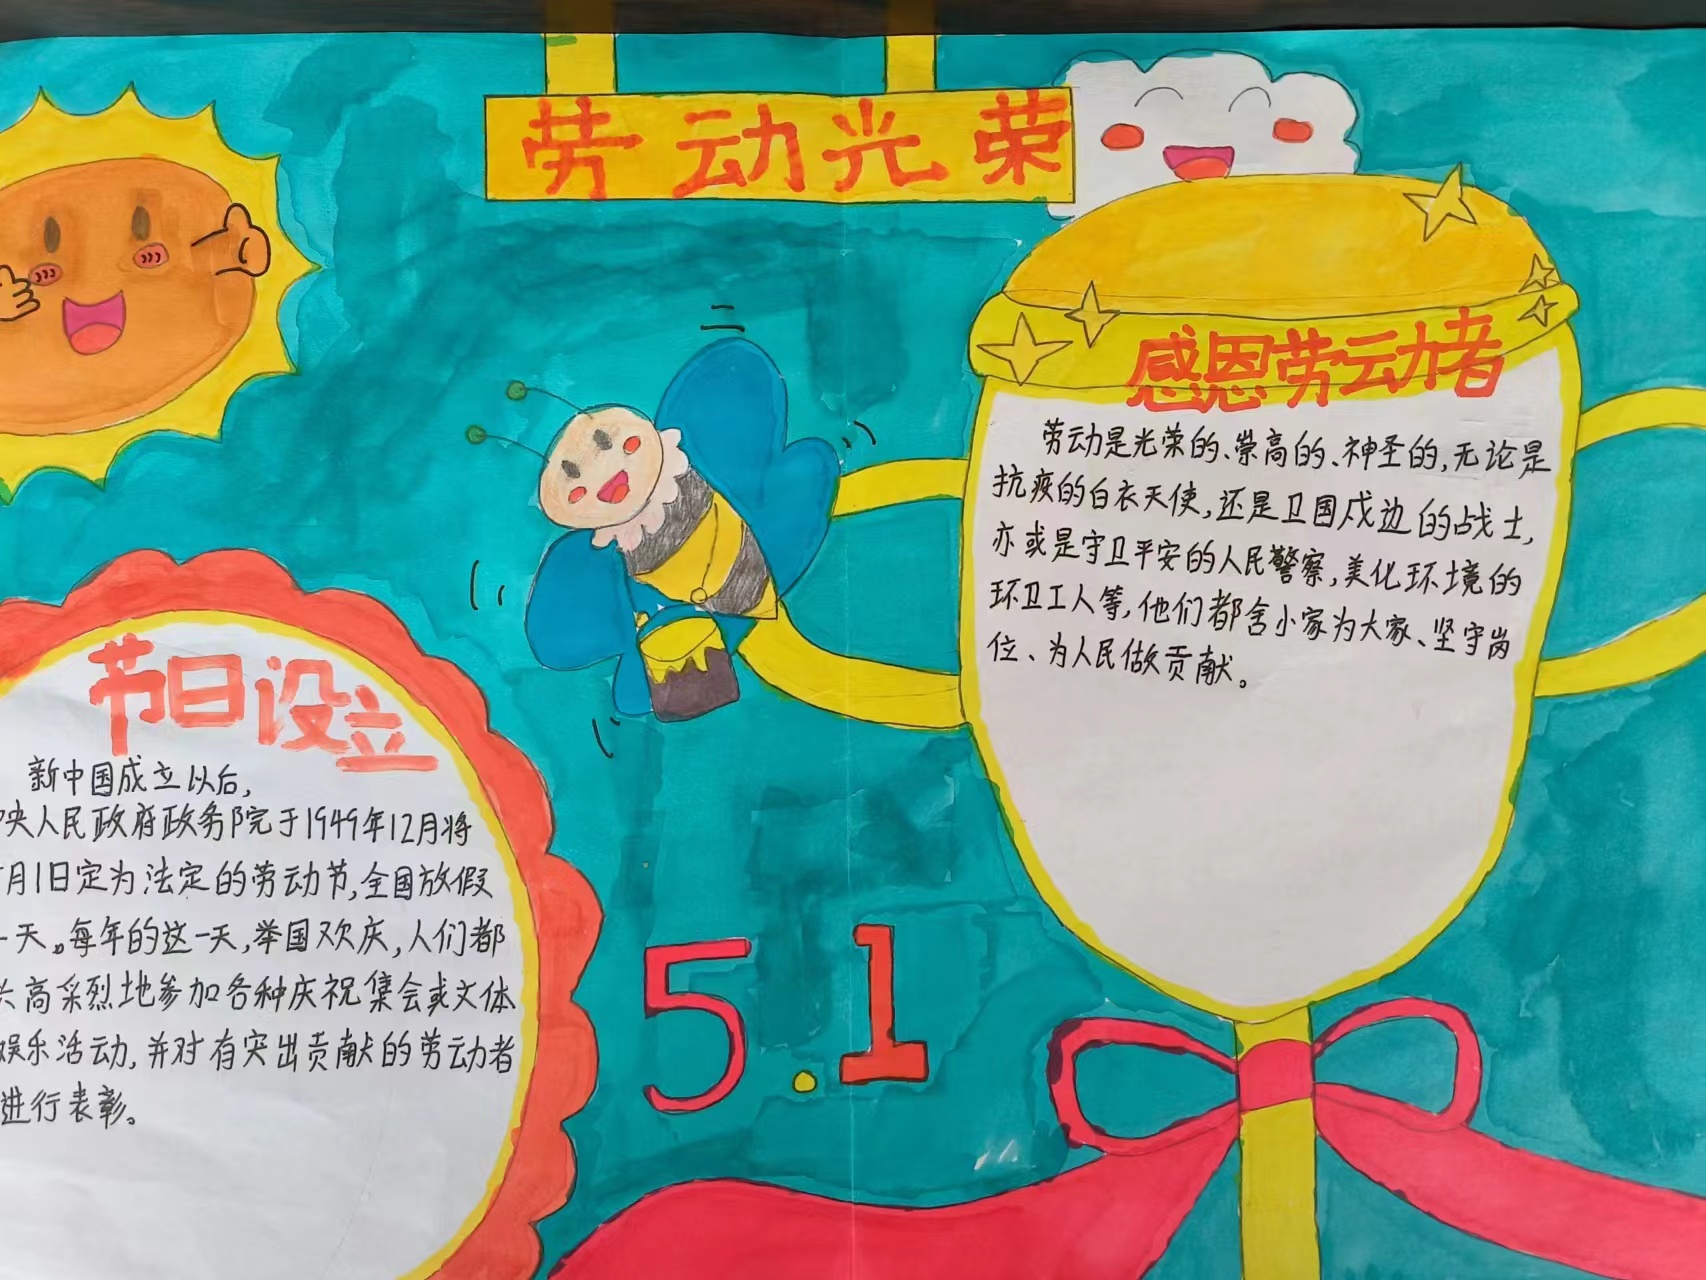 劳动光荣
感恩劳动者
劳动是光荣的、崇高的、神圣的,无论是
抗疫的白衣天使,还是卫国戍边的战士,
亦或是守卫平安的人民警察,美化环境的
环卫工人等,他们都舍小家为大家、坚守岗
位、为人民做贡献。
节日设立
新中国成立以后,
央人民政府政务院于1949年12月将
月1日定为法定的劳动节,全国放假
一天。每年的这一天,举国欢庆,人们都
高采烈地参加各种庆祝集会或文体
娱乐活动,并对有突出贡献的劳动者
进行表彰。
5.1